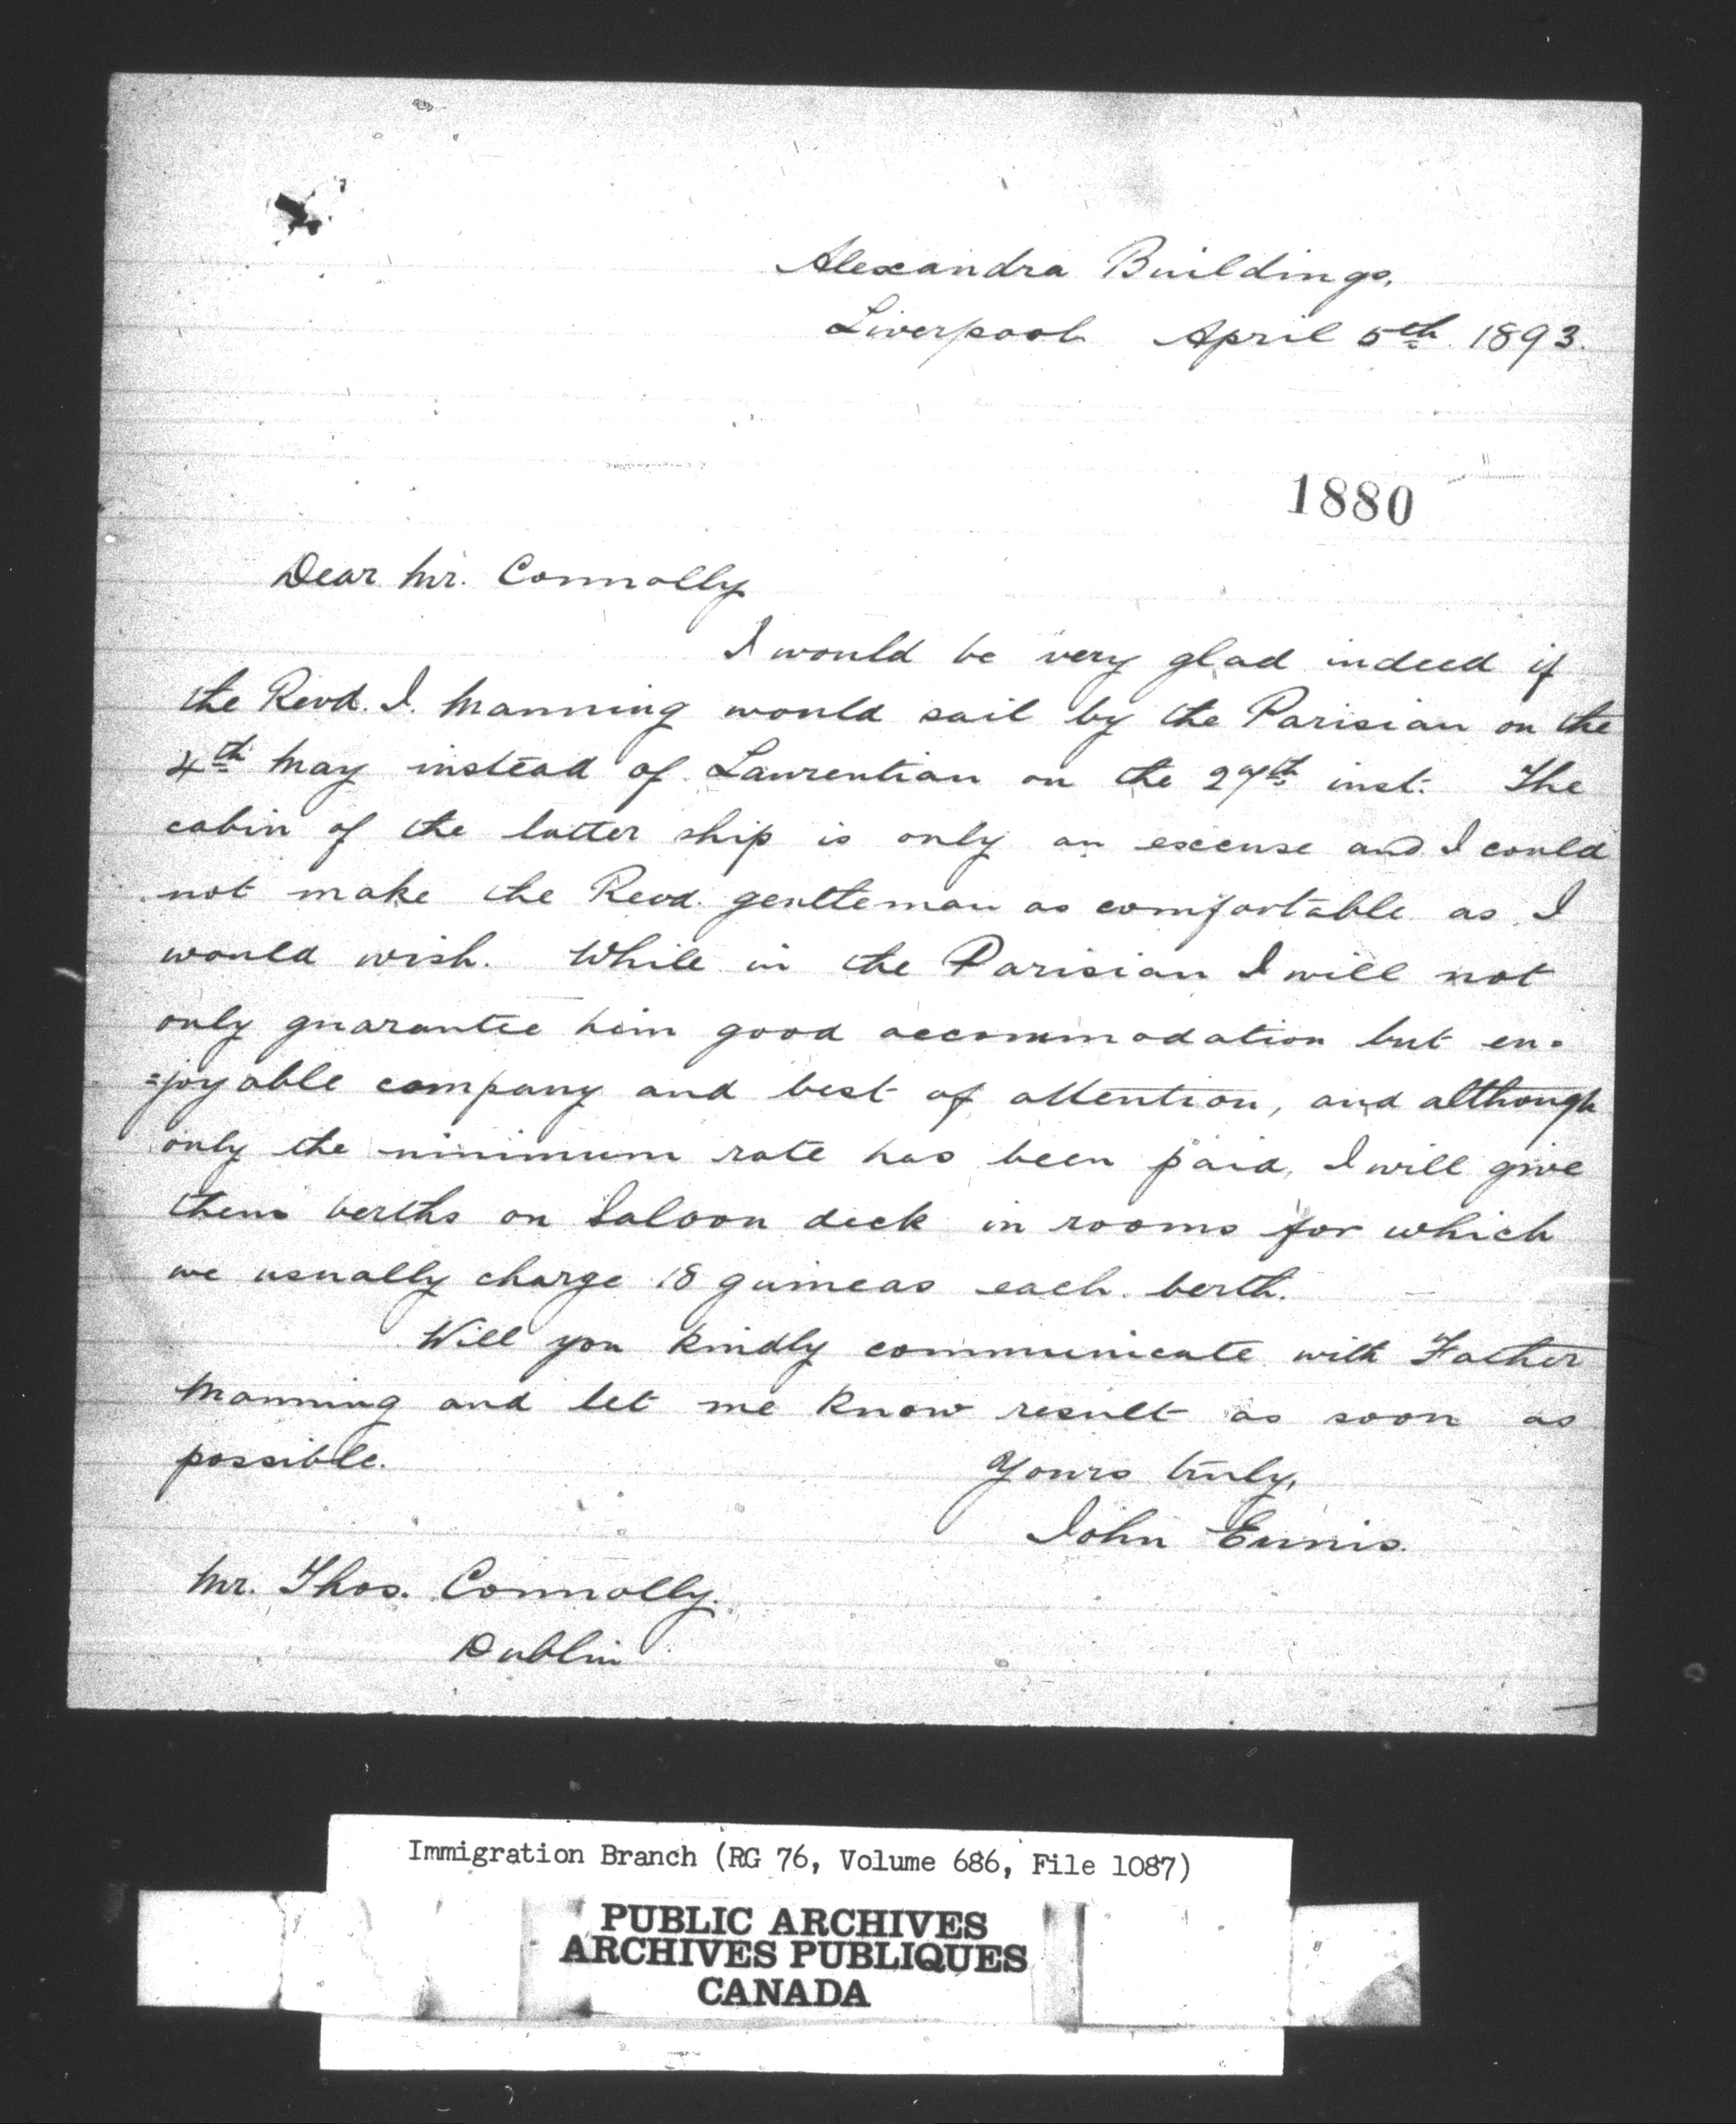 Alexandra Buildings,
Liverpool April 5th 1893.
1880
Dear Mr. Connolly
I would be very glad indeed if
the Revd. I. Manning would sail by the Parisian on the
4th May instead of Laurentian on the 27th inst. The
cabin of the latter ship is only an excuse and I could
not make the Revd. gentleman as comfortable as I
would wish. While in the Parisian I will not
only guarantee him good accommodation but en-
=joyable company and best of attention, and although
only the minimum rate has been paid, I will give
them berths on Saloon deck in rooms for which
we usually charge 18 guineas each berth.
Will you kindly communicate with Father
Manning and let me know result as soon as
possible.
Yours truly,
John Ennis.
Mr. Thos. Connolly.
Dublin
Immigration Branch (RG 76, Volume 686, File 1087)
PUBLIC ARCHIVES
ARCHIVES PUBLIQUES
CANADA